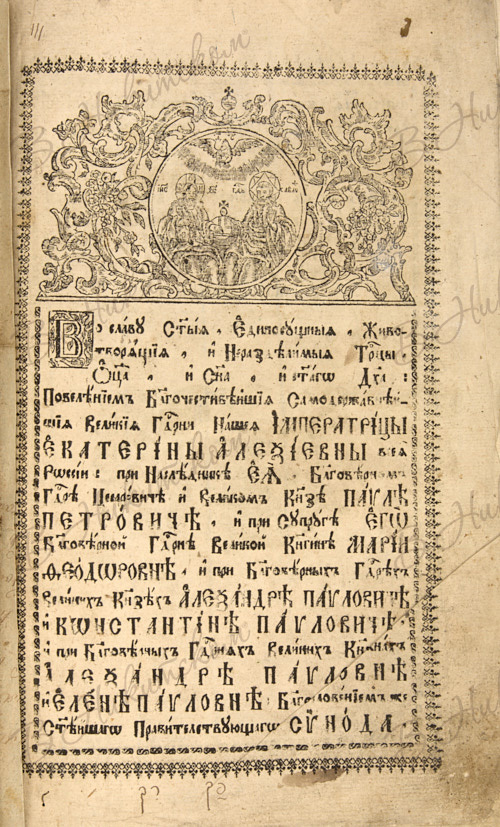 Во славу Ст҃ыѧ, Єдиносꙋщныѧ, Живо-
творѧщїѧ, и Нераздѣлимыѧ Трⷪ҇цы,
Ѻ҆ц҃а, и Сн҃а, и ст҃агѡ Дх҃а:
Повелѣнїемъ Бл҃гочестивѣйшїѧ Самодержавнѣй-
шїѧ Великїѧ Гдⷭ҇рни Нашеѧ ІМПЕРАТРИЦЫ
ЄКАТЕРІНЫ АЛЕѮІЕВНЫ всеѧ
Рѡссїи: при Наслѣдникѣ ЄѦ̀, Бл҃говѣрномъ
Гдⷭ҇рѣ Цесаревичѣ и Великомъ Кнѧзѣ ПАѴЛѢ
ПЕТРО́ВИЧѢ, и при Сꙋпрꙋгѣ ЄГѠ̀
Бл҃говѣрной Гдⷭ҇рнѣ Великой Кнѧгинѣ МАРІИ
ѲЕОДѠРОВНѢ, и при Бл҃говѣрныхъ Гдⷭ҇рѣхъ
Великихъ Кнѧзѣхъ АЛЕѮАНДРѢ ПАѴЛОВИЧѢ
и КѠНСТАНТІНѢ ПАѴЛОВИЧѢ,
и при Бл҃говѣрныхъ Гдⷭ҇рнѧхъ Великихъ Кнѧжнахъ
АЛЕѮАНДРѢ ПАѴЛОВНѢ
и ЄЛЕНѢ ПАѴЛОВНѢ: Бл҃гословенїемъ же
Ст҃ѣйшагѡ Правителствꙋющагѡ СѴНО́ДА.